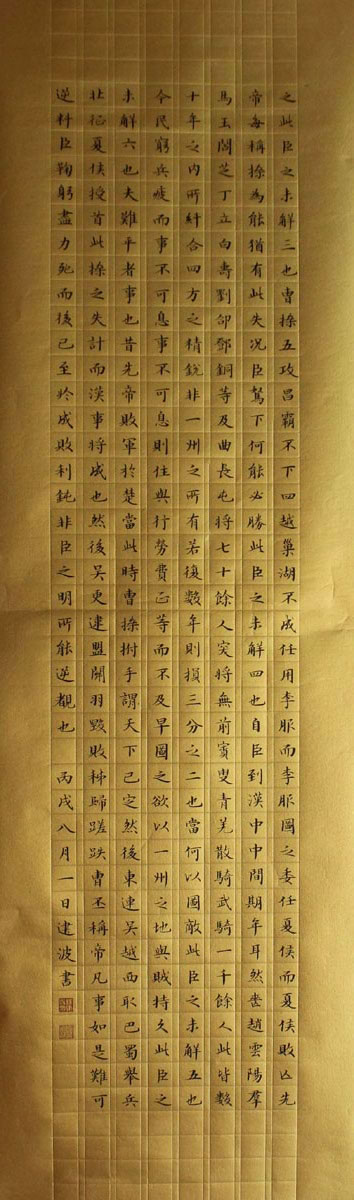 之此臣之未解三也曹操五攻昌霸不下四越巢湖不成任用李服而李服圖之委任夏侯而夏侯敗亡先
帝每稱操為能猶有此失況臣駑下何能必勝此臣之未解四也自臣到漢中中間期年耳然喪趙雲陽羣
馬玉閻芝丁立白壽劉郃鄧銅等及曲長屯將七十餘人突將無前賨叟青羌散騎武騎一千餘人此皆數
十年之內所糾合四方之精銳非一州之所有若復數年則損三分之二也當何以圖敵此臣之未解五也
今民窮兵疲而事不可息事不可息則住與行勞費正等而不及早圖之欲以一州之地與賊持久此臣之
未解六也夫難平者事也昔先帝敗軍於楚當此時曹操拊手謂天下已定然後東連吳越西取巴蜀舉兵
北征夏侯授首此操之失計而漢事將成也然後吳更違盟關羽毀敗秭歸蹉跌曹丕稱帝凡事如是難可
逆料臣鞠躬盡力死而後已至於成敗利鈍非臣之明所能逆覩也 丙戌八月一日建波書